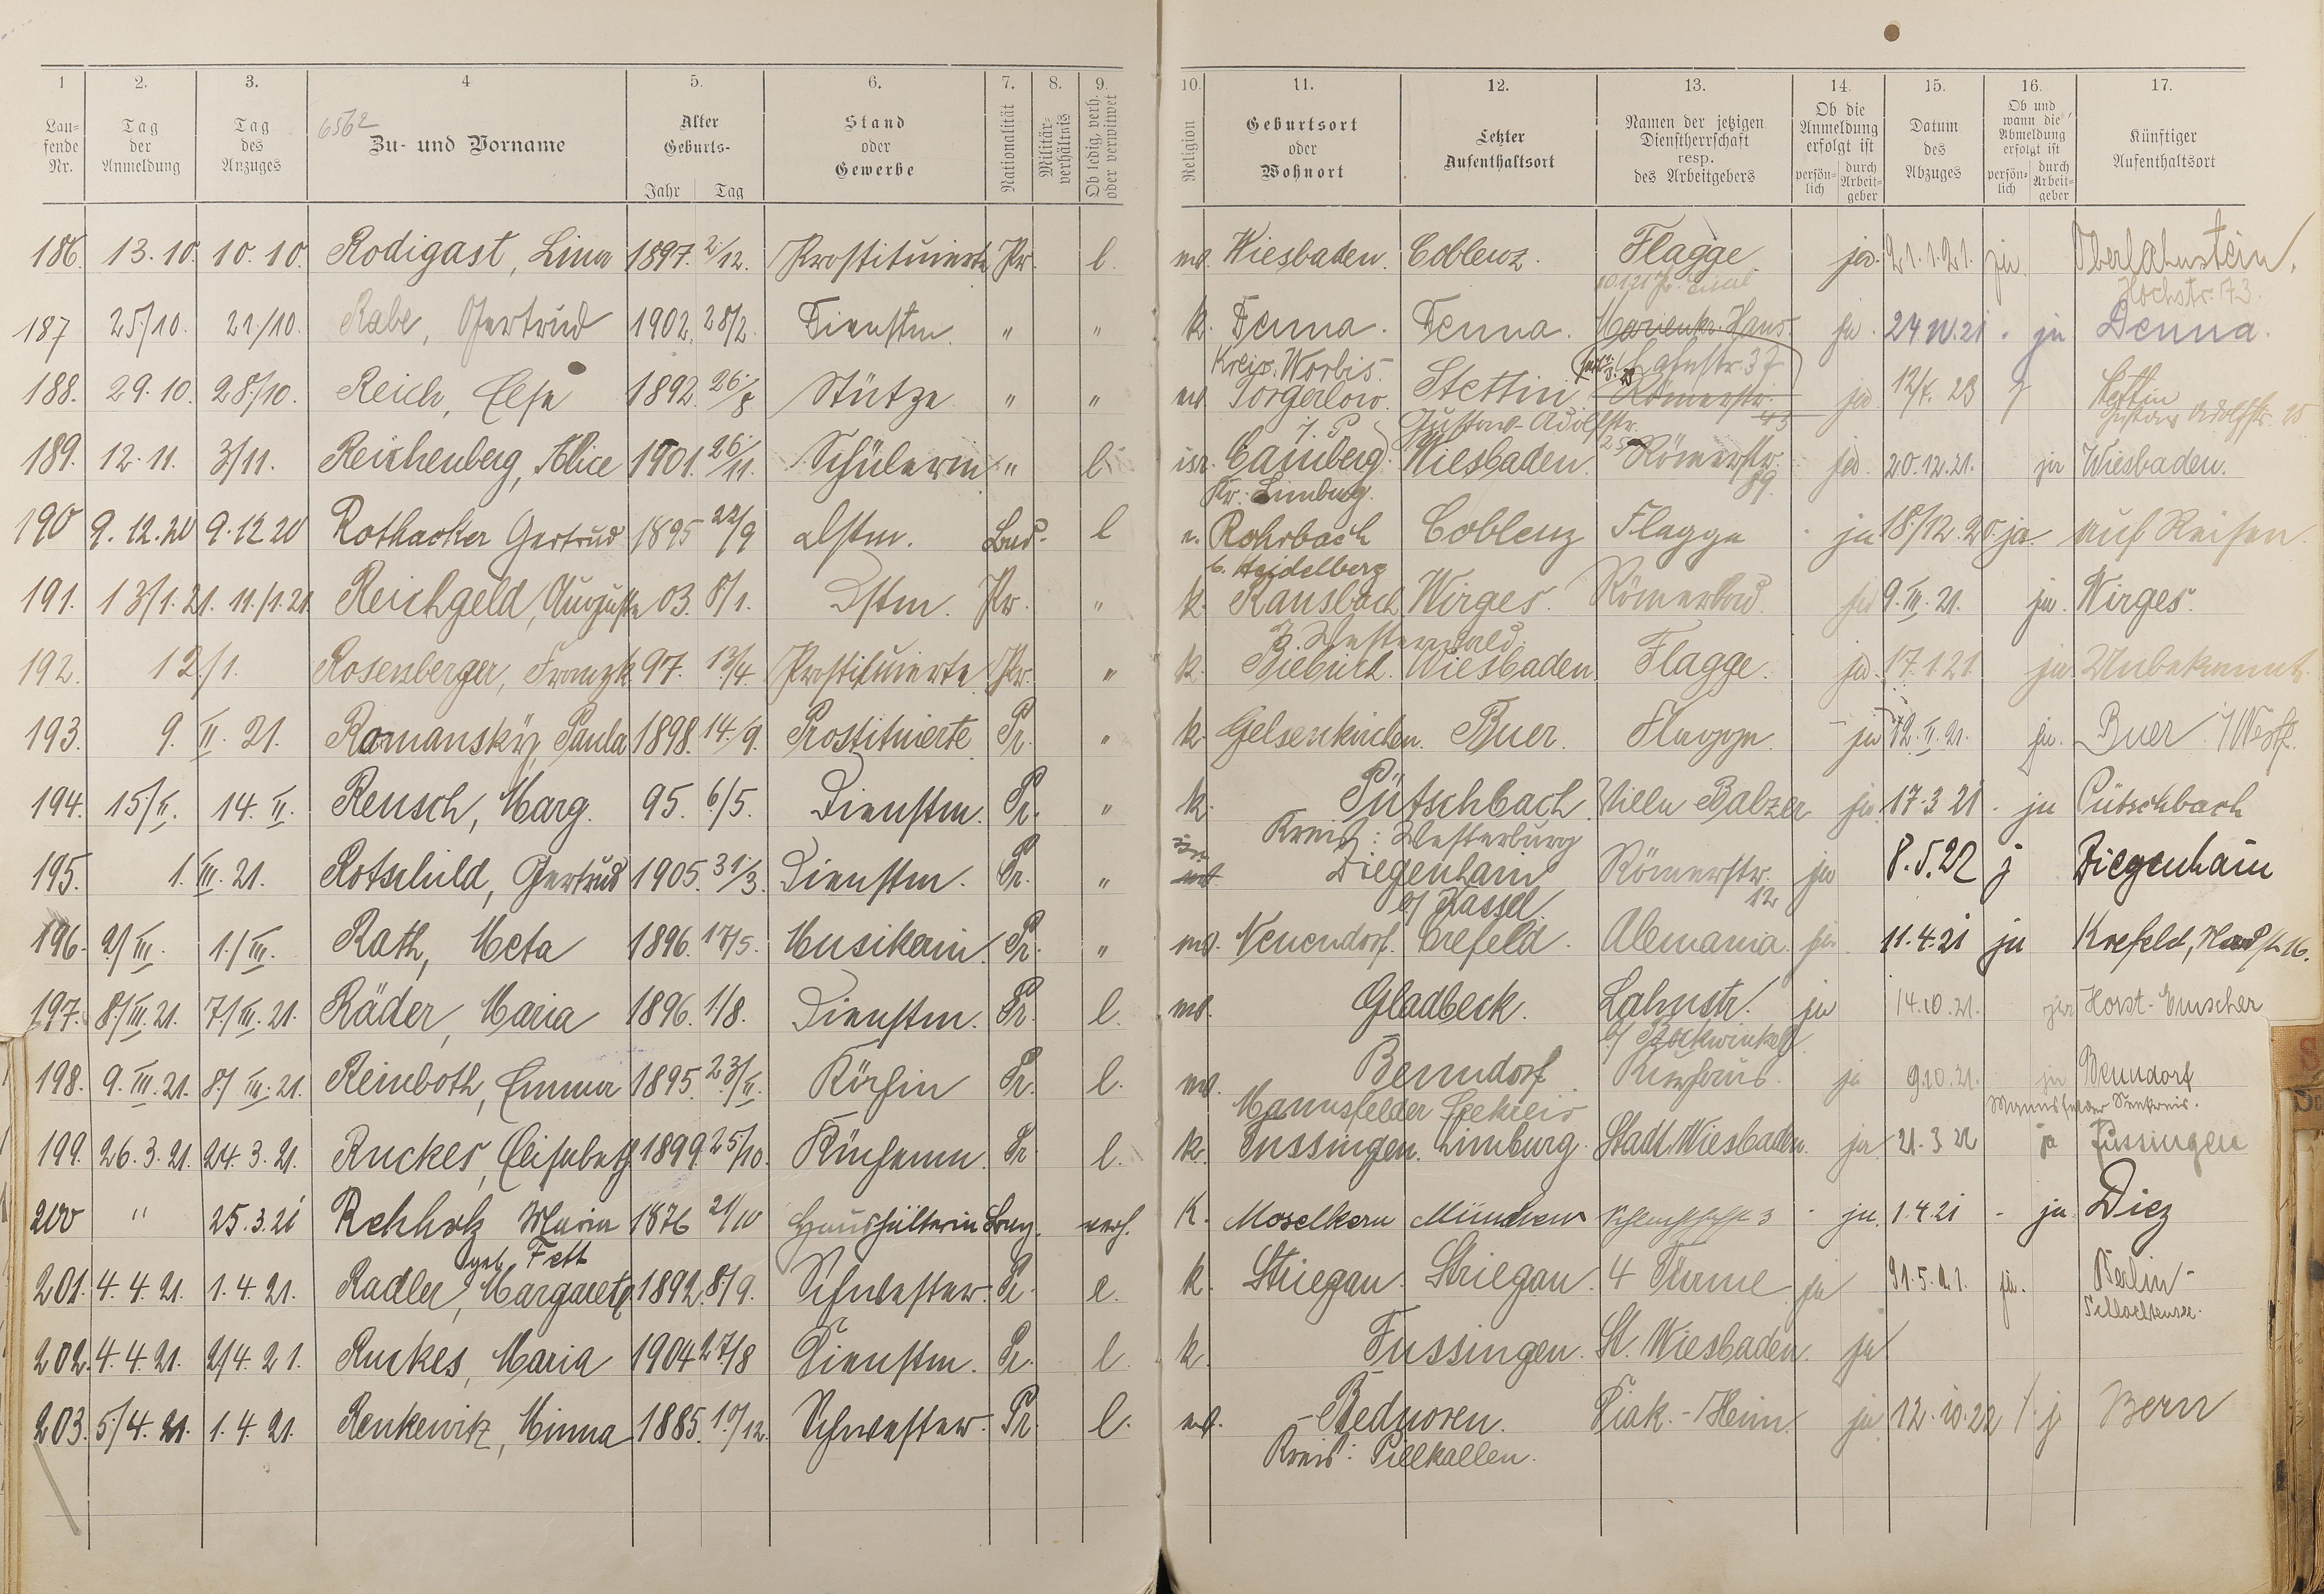 1 2. 3. 4 5. 6. 7. 8. 9. 10. 11. 12. 13. 14. 15. 16. 17.
Lau-
fende
Nr.
Tag
der
Anmeldung
Tag
des
Anzuges
6562
Zu- und Vorname
Alter
Geburts-
Jahr Tag
Stand
oder
Gewerbe
Nationalität
Militär-
verhältnis
Ob ledig, verh.
oder verwitwet
Religion
Geburtsort
oder
Wohnort
Letzter
Aufenthaltsort
Namen der jetzigen
Dienstherrschaft
resp.
des Arbeitgebers
Ob die
Anmeldung
erfolgt ist
persön-
lich
durch
Arbeit-
geber
Datum
des
Abzuges
Ob und
wann die
Abmeldung
erfolgt ist
persön-
lich
durch
Arbeit-
geber
Künftiger
Aufenthaltsort
186. 13.10. 10.10. Rodigast, Lina 1897. 2/12. Prostituierte Pr. l. Wiesbaden. Coblenz. Flagge ja. 21.1.21. ja Oberlahnstein,
Hochstr. 73.
187 25/10. 21/10. Rabe, Gertrud 1902. 28/2. Dienstm. " " k. Denna. Denna. Marienkr. Haus ja. 24.IV.21. ja Denna.
Kreis. Worbis. Lahnstr. 37
188. 29.10. 28/10. Reich, Else 1892. 26./8 Stütze " " Torgelow. Stettin Römerstr. 43 ja 12/4. 23 Stettin
Gustav-Adolfstr. Gustav Adolfstr.
189. 12.11. 3/11. Reichenberg, Alice 1901. 26./11. Schülerin " l. isr. Camberg. Wiesbaden. Römerstr. 89. ja. 20.12.21. ja Wiesbaden.
Kr. Limburg.
190 9.12.20 9.12 20 Rothacker Gertrud 1895 22/9 Dstm. Bad. l e. Rohrbach Coblenz Flagge ja 18/12.20. ja auf Reisen.
b. Heidelberg
191. 13/1.21. 11./1.21. Reichgeld, Auguste 03. 8/1. Dstm. Pr. " k. Ransbach Wirges. Römerbad ja 9.III.21. ja. Wirges.
Westerwald.
192. 12/1. Rosenberger, Franzk. 97. 13/4. Prostituierte Pr. " k. Biebrich. Wiesbaden Flagge. ja. 17.1.21. ja. Unbekannt.
193. 9. II. 21. Romansky, Paula 1898. 14./9. Prostituierte Pr. " k. Gelsenkirchen. Buer. Flagge. ja 12.II.21. ja. Buer i/Westf.
194. 15/II. 14. II. Reusch, Marg. 95. 6/5. Dienstm. Pr. " k. Pütschbach. Villa Balzer ja. 17.3 21. ja Pütschbach
Kreis: Westerburg
195. 1. III. 21. Rotschild, Gertrud 1905. 31./3. Dienstm. Pr. " isr. Ziegenhain Römerstr. 12 ja 8.5.22 j Ziegenhain
b/ Kassel.
196. 2/III. 1./III. Rath, Meta 1896. 17/5. Musikerin. Pr. " Neuendorf. Crefeld. Alemania. ja. 11.4.21 ja Krefeld,
197. 8./III.21. 7./III.21. Räder, Maria 1896. 1/8. Dienstm. Pr. l. Gladbeck. Lahnstr. ja 14.10.21. ja Horst-Emscher
b/ Bockwinkel.
198. 9.III.21. 8./III.21. Reinboth, Emma 1895. 23/II. Köchin Pr. l. Benndorf. Kurhaus. ja 9.10.21. ja Benndorf
Mannsfelder Seekreis Mannsfelder Seekreis.
199. 26.3.21. 24.3.21. Ruckes, Elisabeth 1899. 25/10. Küchenm. Pr. l. k. Fussingen. Limburg. Stadt Wiesbaden. ja 21.3 22 ja Fussingen
200 " 25.3.21 Rehholz Maria 1876 21/10 Haushälterin Bay. verh. K. Moselkern München 3 - ja. 1.4.21 - ja Diez
geb. Fett
201. 4.4.21. 1.4.21. Radler, Margarete 1892. 8/9. Schwester. Pr. l. k. Striegau. Striegau. 4 Türme ja 31.5.21. ja. Berlin-
Schlachtensee.
202. 4.4.21. 2/4.21. Ruckes, Maria 1904 27/8 Dienstm. Pr. l. k. Fussingen. St. Wiesbaden. ja
203. 5./4.21. 1.4.21. Renkewitz, Minna 1885. 10/12. Schwester. Pr. l. Bednoren. Diak.-Heim. ja 12.10.22 j Bern
Kreis: Pillkallen.